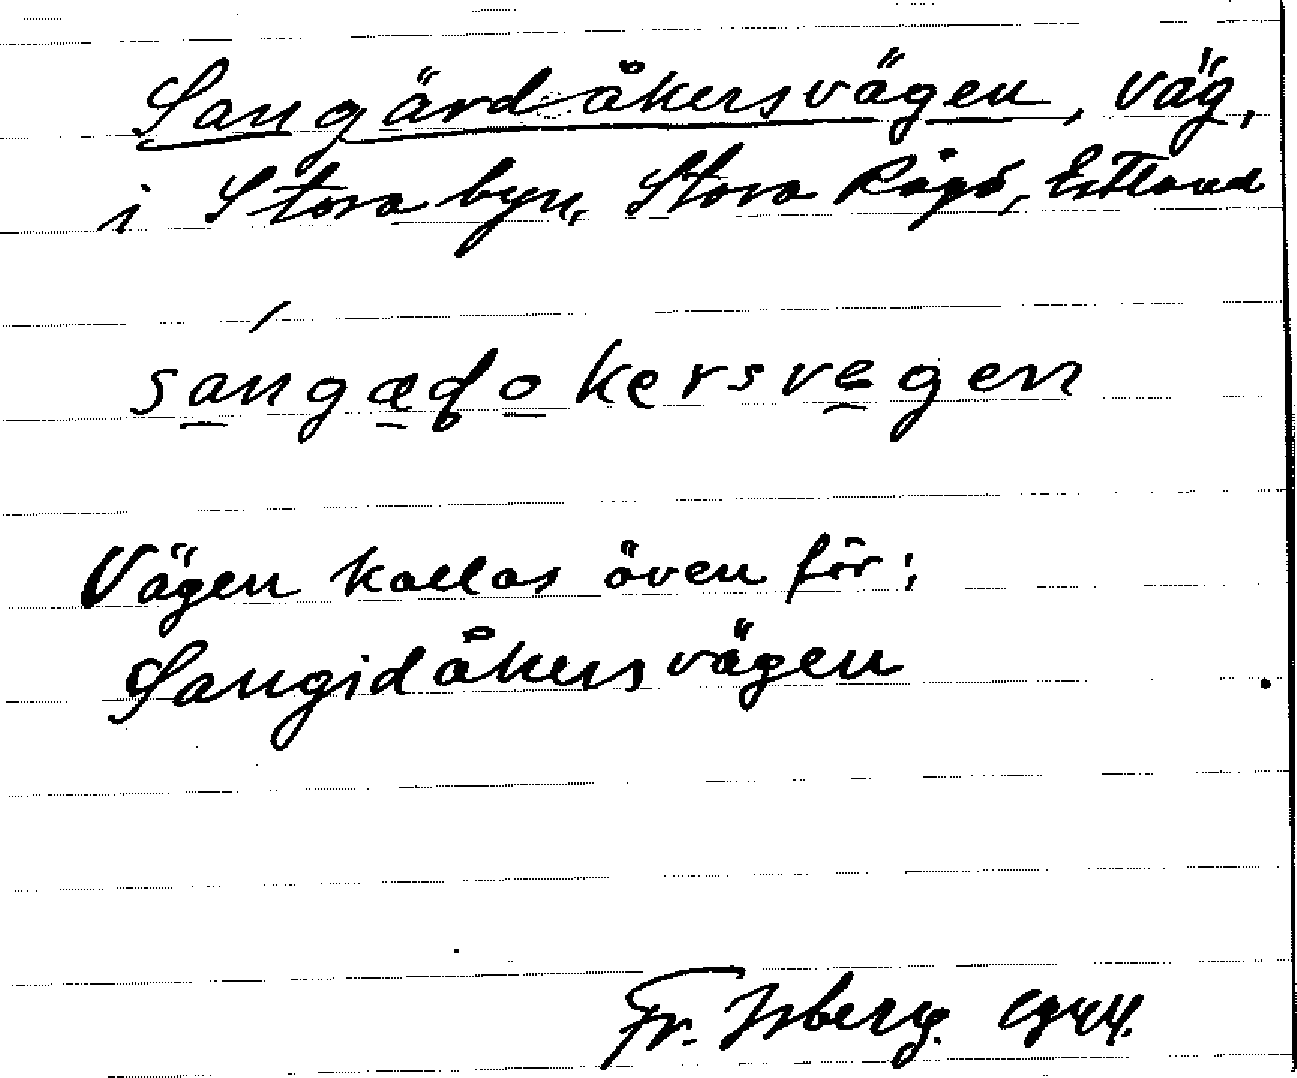 Sangärdåkersvägen, väg,
i Stora byn, Stora Rågö, Estland
sangæɖokersvegen
Vägen kallas även för:
Sangidåkersvägen
Fr. Isberg. 1944.